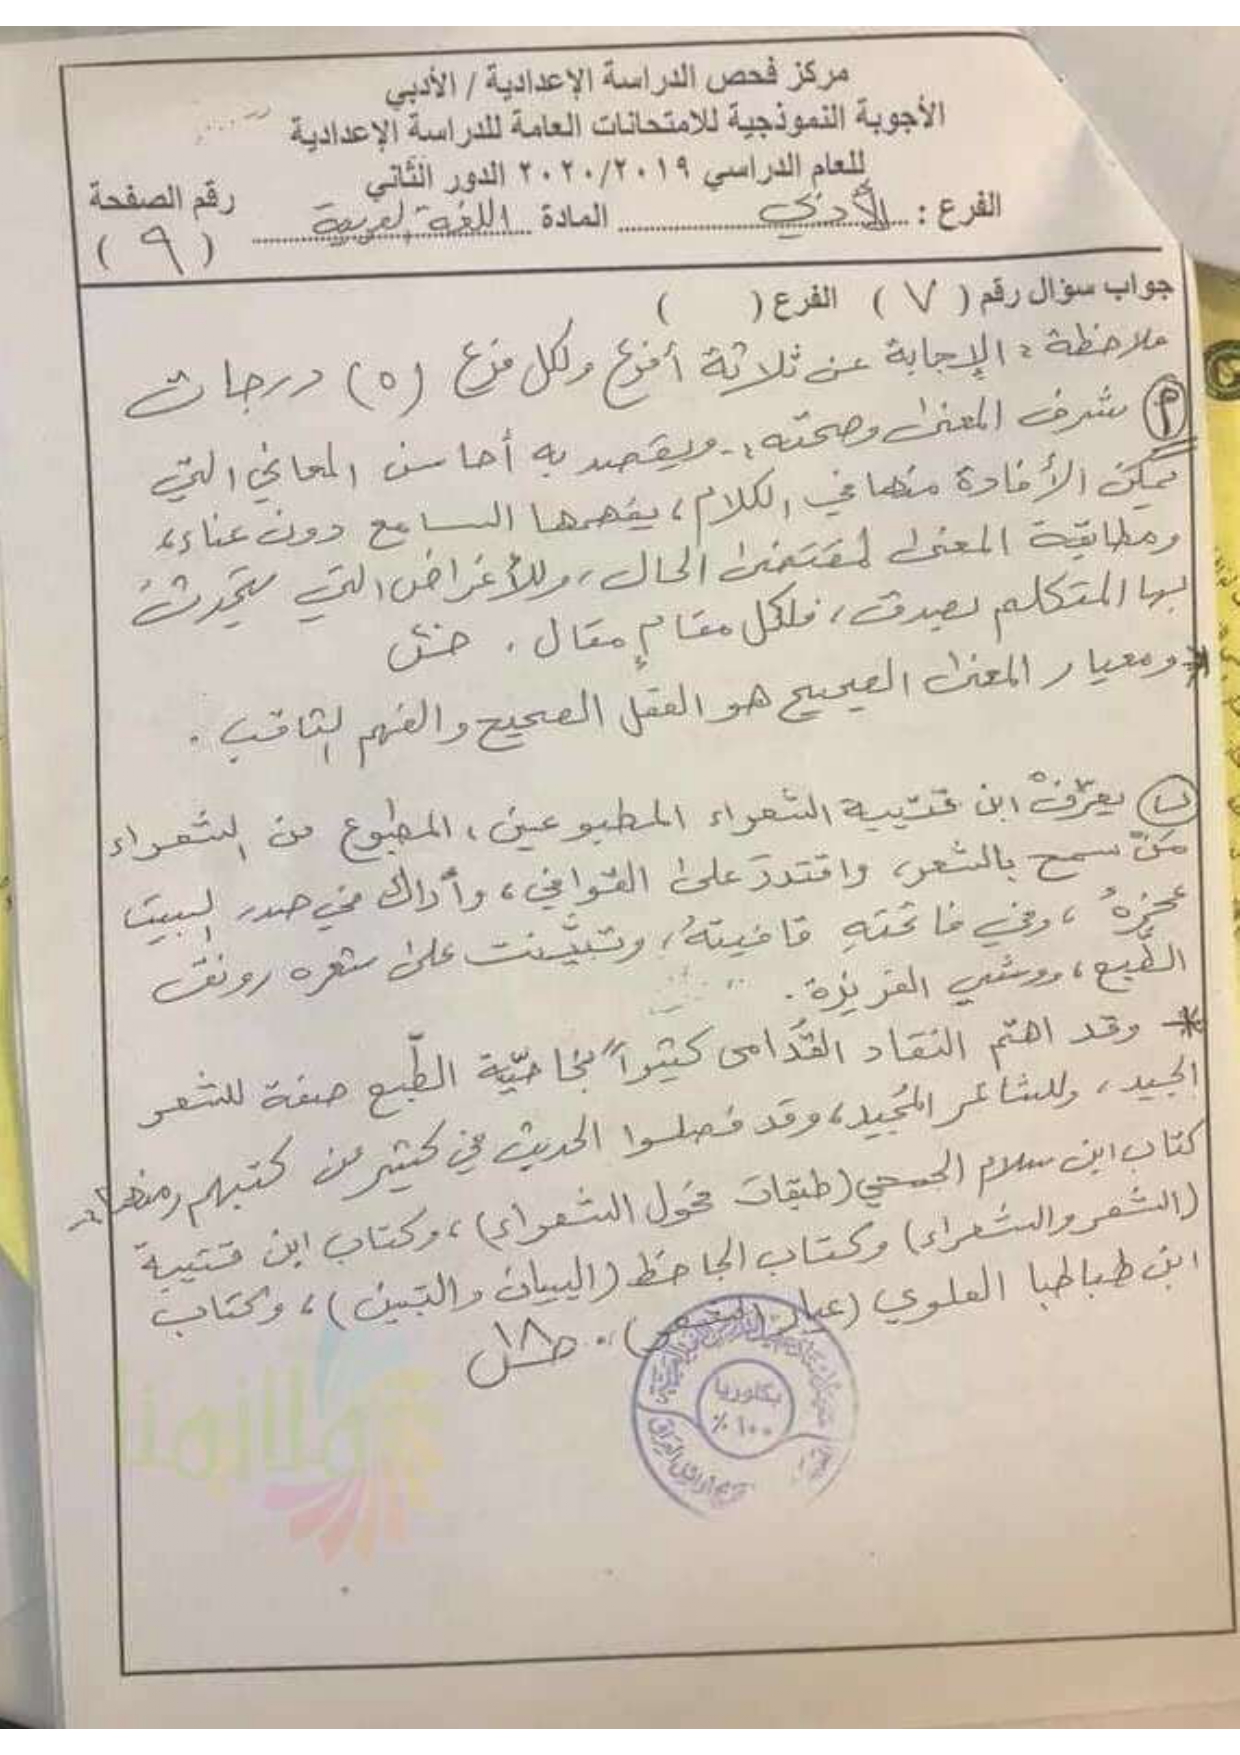 مركز فحص الدراسة الإعدادية / الأدبي
الأجوبة النموذجية للامتحانات العامة للدراسة الإعدادية
للعام الدراسي ٢٠٢٠/٢٠١٩ الدور الثاني
الفرع : الأدبي المادة اللغة العربية رقم الصفحة
( ٩ )
جواب سؤال رقم ( ٧ ) الفرع ( )
ملاحظة : الإجابة عن ثلاثة أفرع ولكل فرع (٥) درجات
أ شرف المعنى وصحته :- ويقصد به أحاسن المعاني التي
يمكن الأفادة منها في الكلام ، يفهمها السامع دون عناء ،
ومطابقة المعنى لمقتضى الحال ، وللأغراض التي يتحدث
بها المتكلم بصدق ، فلكل مقام مقال .
* ومعيار المعنى الصحيح هو العقل الصحيح والفهم الثاقب .
ب يعرّف ابن قتيبة الشعراء المطبوعين ، المطبوع من الشعراء
مَنْ سمح بالشعر ، واقتدرَ على القوافي ، وأراك في صدر البيت
عجزهُ ، وفي فاتحتهِ قافيتهُ ، وتبيّنت على شعره رونق
الطّبع ، ووشي الغريزة .
* وقد اهتم النقاد القُدامى كثيراً بخاصّية الطّبع صفة للشعر
الجيد ، وللشاعر المُجيد ، وقد فصلوا الحديث في كثير من كتبهم ومنها
كتاب ابن سلام الجمحي (طبقات فحول الشعراء) ، وكتاب ابن قتيبة
(الشعر والشعراء) وكتاب الجاحظ (البيان والتبين) ، وكتاب
ابن طباطبا العلوي (عيار الشعر) .
بكلوريا
١٠٠ %
ملازمنا